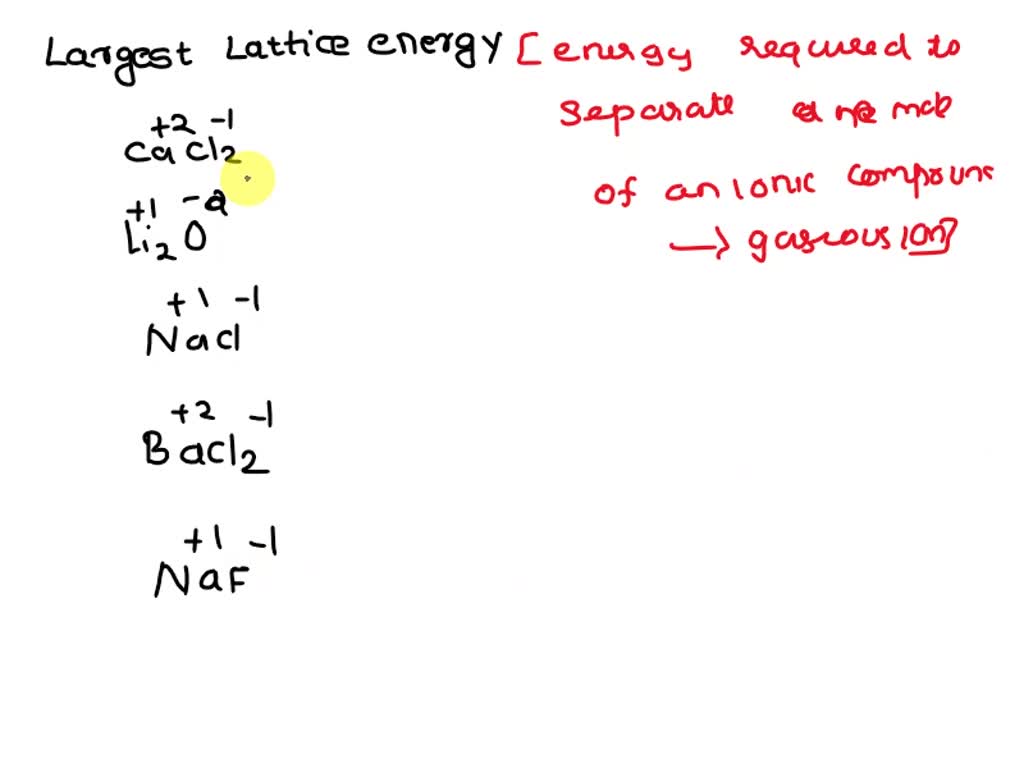 Largest Lattice energy [energy required to
separate
of an ionic compound
→ gaseous ion]
+2 -1
CaCl2
+1 -2
Li2O
+1 -1
NaCl
+2 -1
BaCl2
+1 -1
NaF